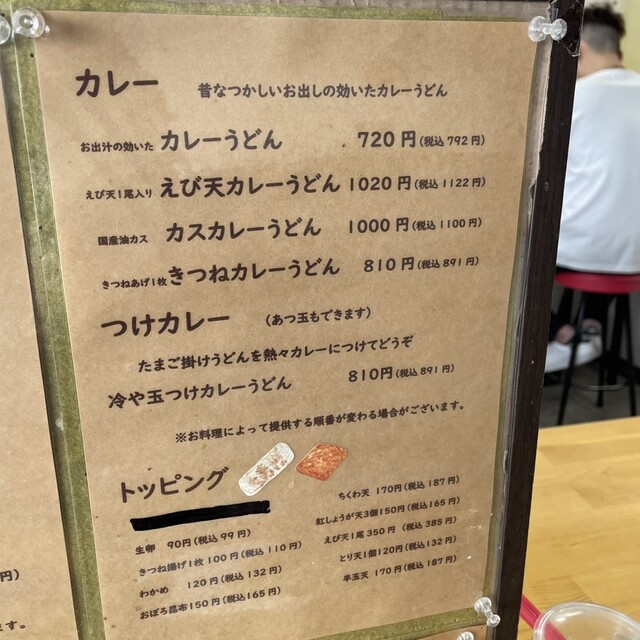 カレー 昔なつかしいお出しの効いたカレーうどん
お出汁の効いた カレーうどん 720円(税込792円)
えび天1尾入り えび天カレーうどん 1020円(税込1122円)
国産油カス カスカレーうどん 1000円(税込1100円)
きつねあげ1枚 きつねカレーうどん 810円(税込891円)
つけカレー (あつ玉もできます)
たまご掛けうどんを熱々カレーにつけてどうぞ
冷や玉つけカレーうどん 810円(税込891円)
※お料理によって提供する順番が変わる場合がございます。
トッピング
生卵 90円(税込99円)
きつね揚げ1枚100円(税込110円)
わかめ 120円(税込132円)
おぼろ昆布150円(税込165円)
ちくわ天 170円(税込187円)
紅しょうが天3個150円(税込165円)
えび天1尾350円 (税込385円)
とり天1個120円(税込132円)
半玉天 170円(税込187円)
円)
ます。